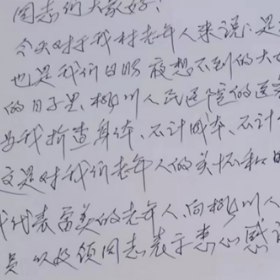 同志们大家好！
今天对于我村老年人来说是
也是我们日盼夜想不到的大
的日子里，柳川人民医院的医
为我检查身体、不计成本、不计
这是对我们老年人的关怀和
我代表富美的老年人、向柳川人
员以及领同志表示衷心感谢